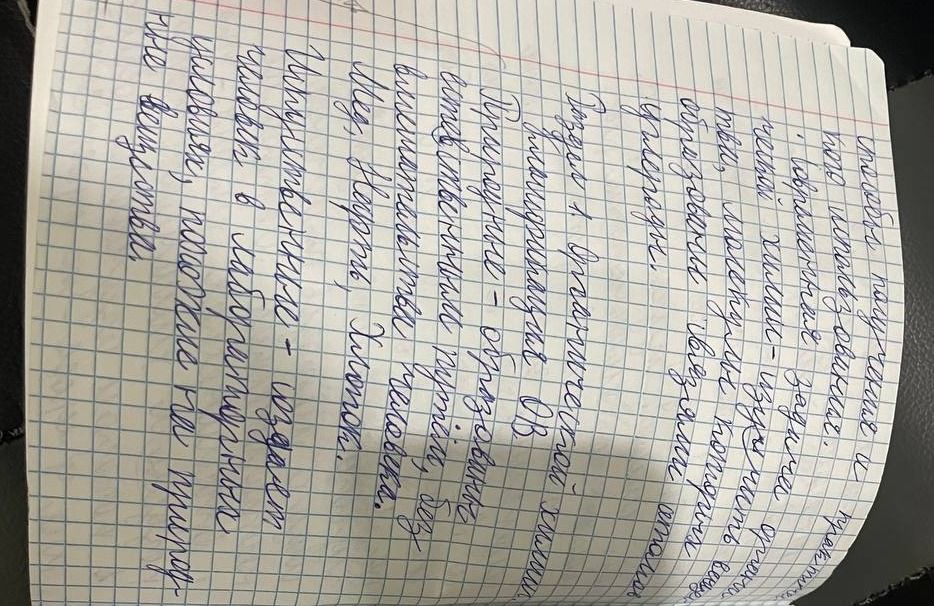 способы получения и практич.
кое использование.
Современные задачи органи
ческой химии - изучить вещес
тва, молекулы которых
образованы связями атомов
углерода.
Раздел 1. Органической химии.
Классификация ОВ
Природные - образованы
естественным путём, без
вмешательства человека.
Мед, Нефть, Хлопок.
Искусственные - создает
человек в лабораторных
условиях, похожие на природ-
ные вещества.